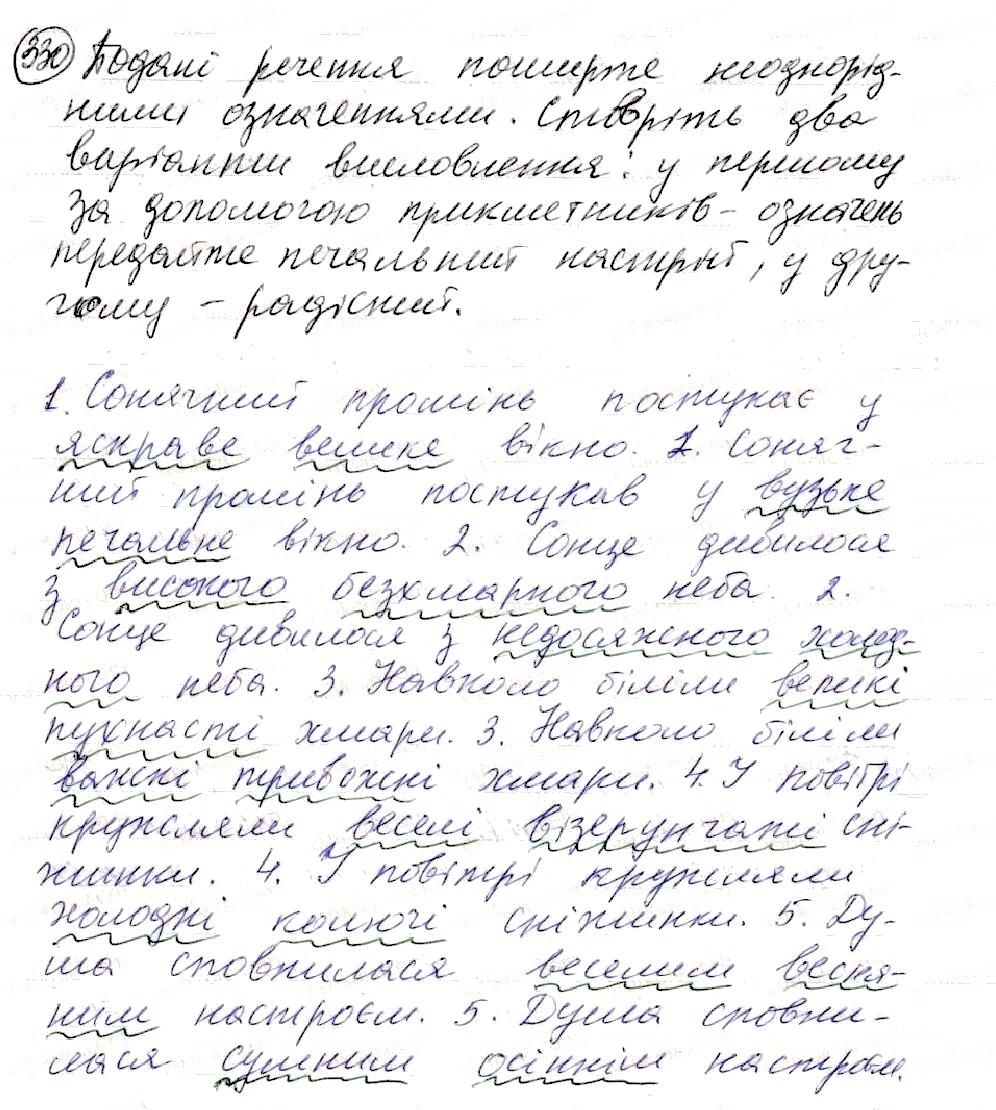 330 Подані речення поширте неоднорід-
ними означеннями. Створіть два
варіанти висловлення: у першому
за допомогою прикметників – означень
передайте печальний настрій, у дру-
гому – радісний.
1. Сонячний промінь постукає у
яскраве велике вікно. 1. Соняч-
ний промінь постукав у вузьке
печальне вікно. 2. Сонце дивилося
з високого безхмарного неба. 2.
Сонце дивилося з недосяжного холод-
ного неба. 3. Навколо біліли великі
пухнасті хмари. 3. Навколо біліли
важкі тривожні хмари. 4. У повітрі
кружляли веселі візерунчаті сні-
жинки. 4. У повітрі кружляли
холодні колючі сніжинки. 5. Ду-
ша сповнилася веселим весня-
ним настроєм. 5. Душа сповни-
лася сумним осіннім настроєм.